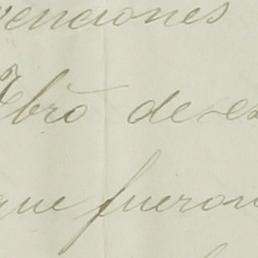 venciones
Ebro de es
que fueron